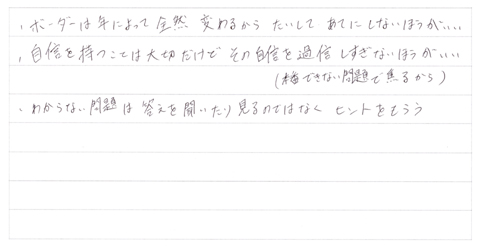 ・ボーダーは年によって全然変わるからたいしてあてにしないほうがいい
・自信を持つことは大切だけどその自信を過信しすぎないほうがいい
(本番できない問題で焦るから)
・わからない問題は答えを聞いたり見るのではなくヒントをもらう